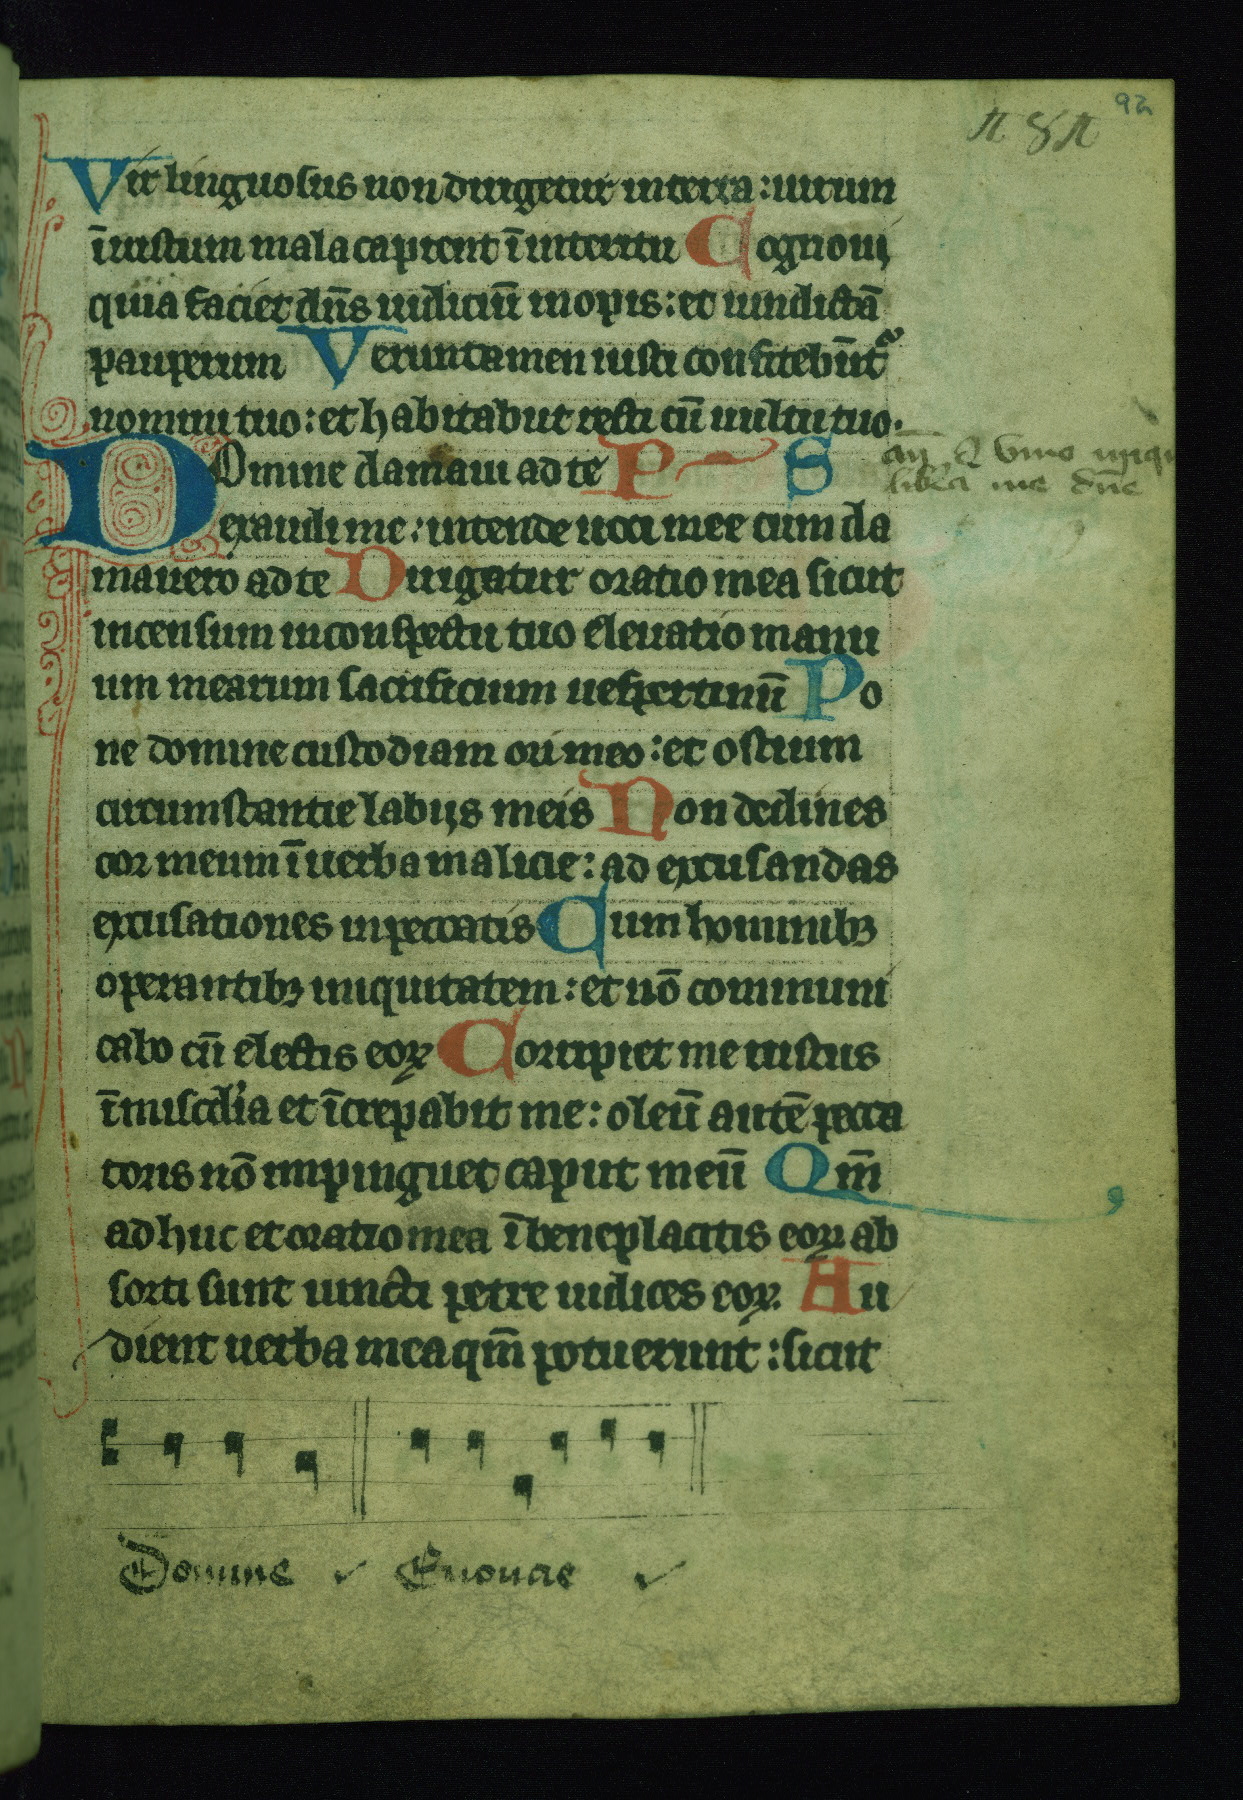 92
Vir linguosus non dirigetur in terra: uirum
īiustum mala capient ī interitu Cognoui
quia faciet dn̄s iudiciū inopis: et uindictā
pauperum Veruntamen iusti confitebūt᷑
nomini tuo: et habitabūt recti cū uultu tuo.
Domine clamaui ad te P S
exaudi me: intende uoci mee cum cla
mauero ad te Dirigatur oratio mea sicut
incensum in conspectu tuo eleuatio manu
um mearum sacrificium uespertinū Po
ne domine custodiam ori meo: et ostium
circumstantie labijs meis Non declines
cor meum ī uerba malicie: ad excusandas
excusationes in peccatis Cum hominibꝫ
operantibꝫ iniquitatem: et nō communi
cabo cū electis eoꝝ Corripiet me iustus
ī miscd'ia et īcrepabit me: oleū autē pecca
toris nō impinguet caput meū Qm̄
adhuc et oratio mea ī beneplacitis eoꝝ ab
sorti sunt iuncti petre iudices eoꝝ. Au
dient uerba mea qm̄ potuerunt: sicut
a viro iniquo
libera me dn̄e
Domine Euouae